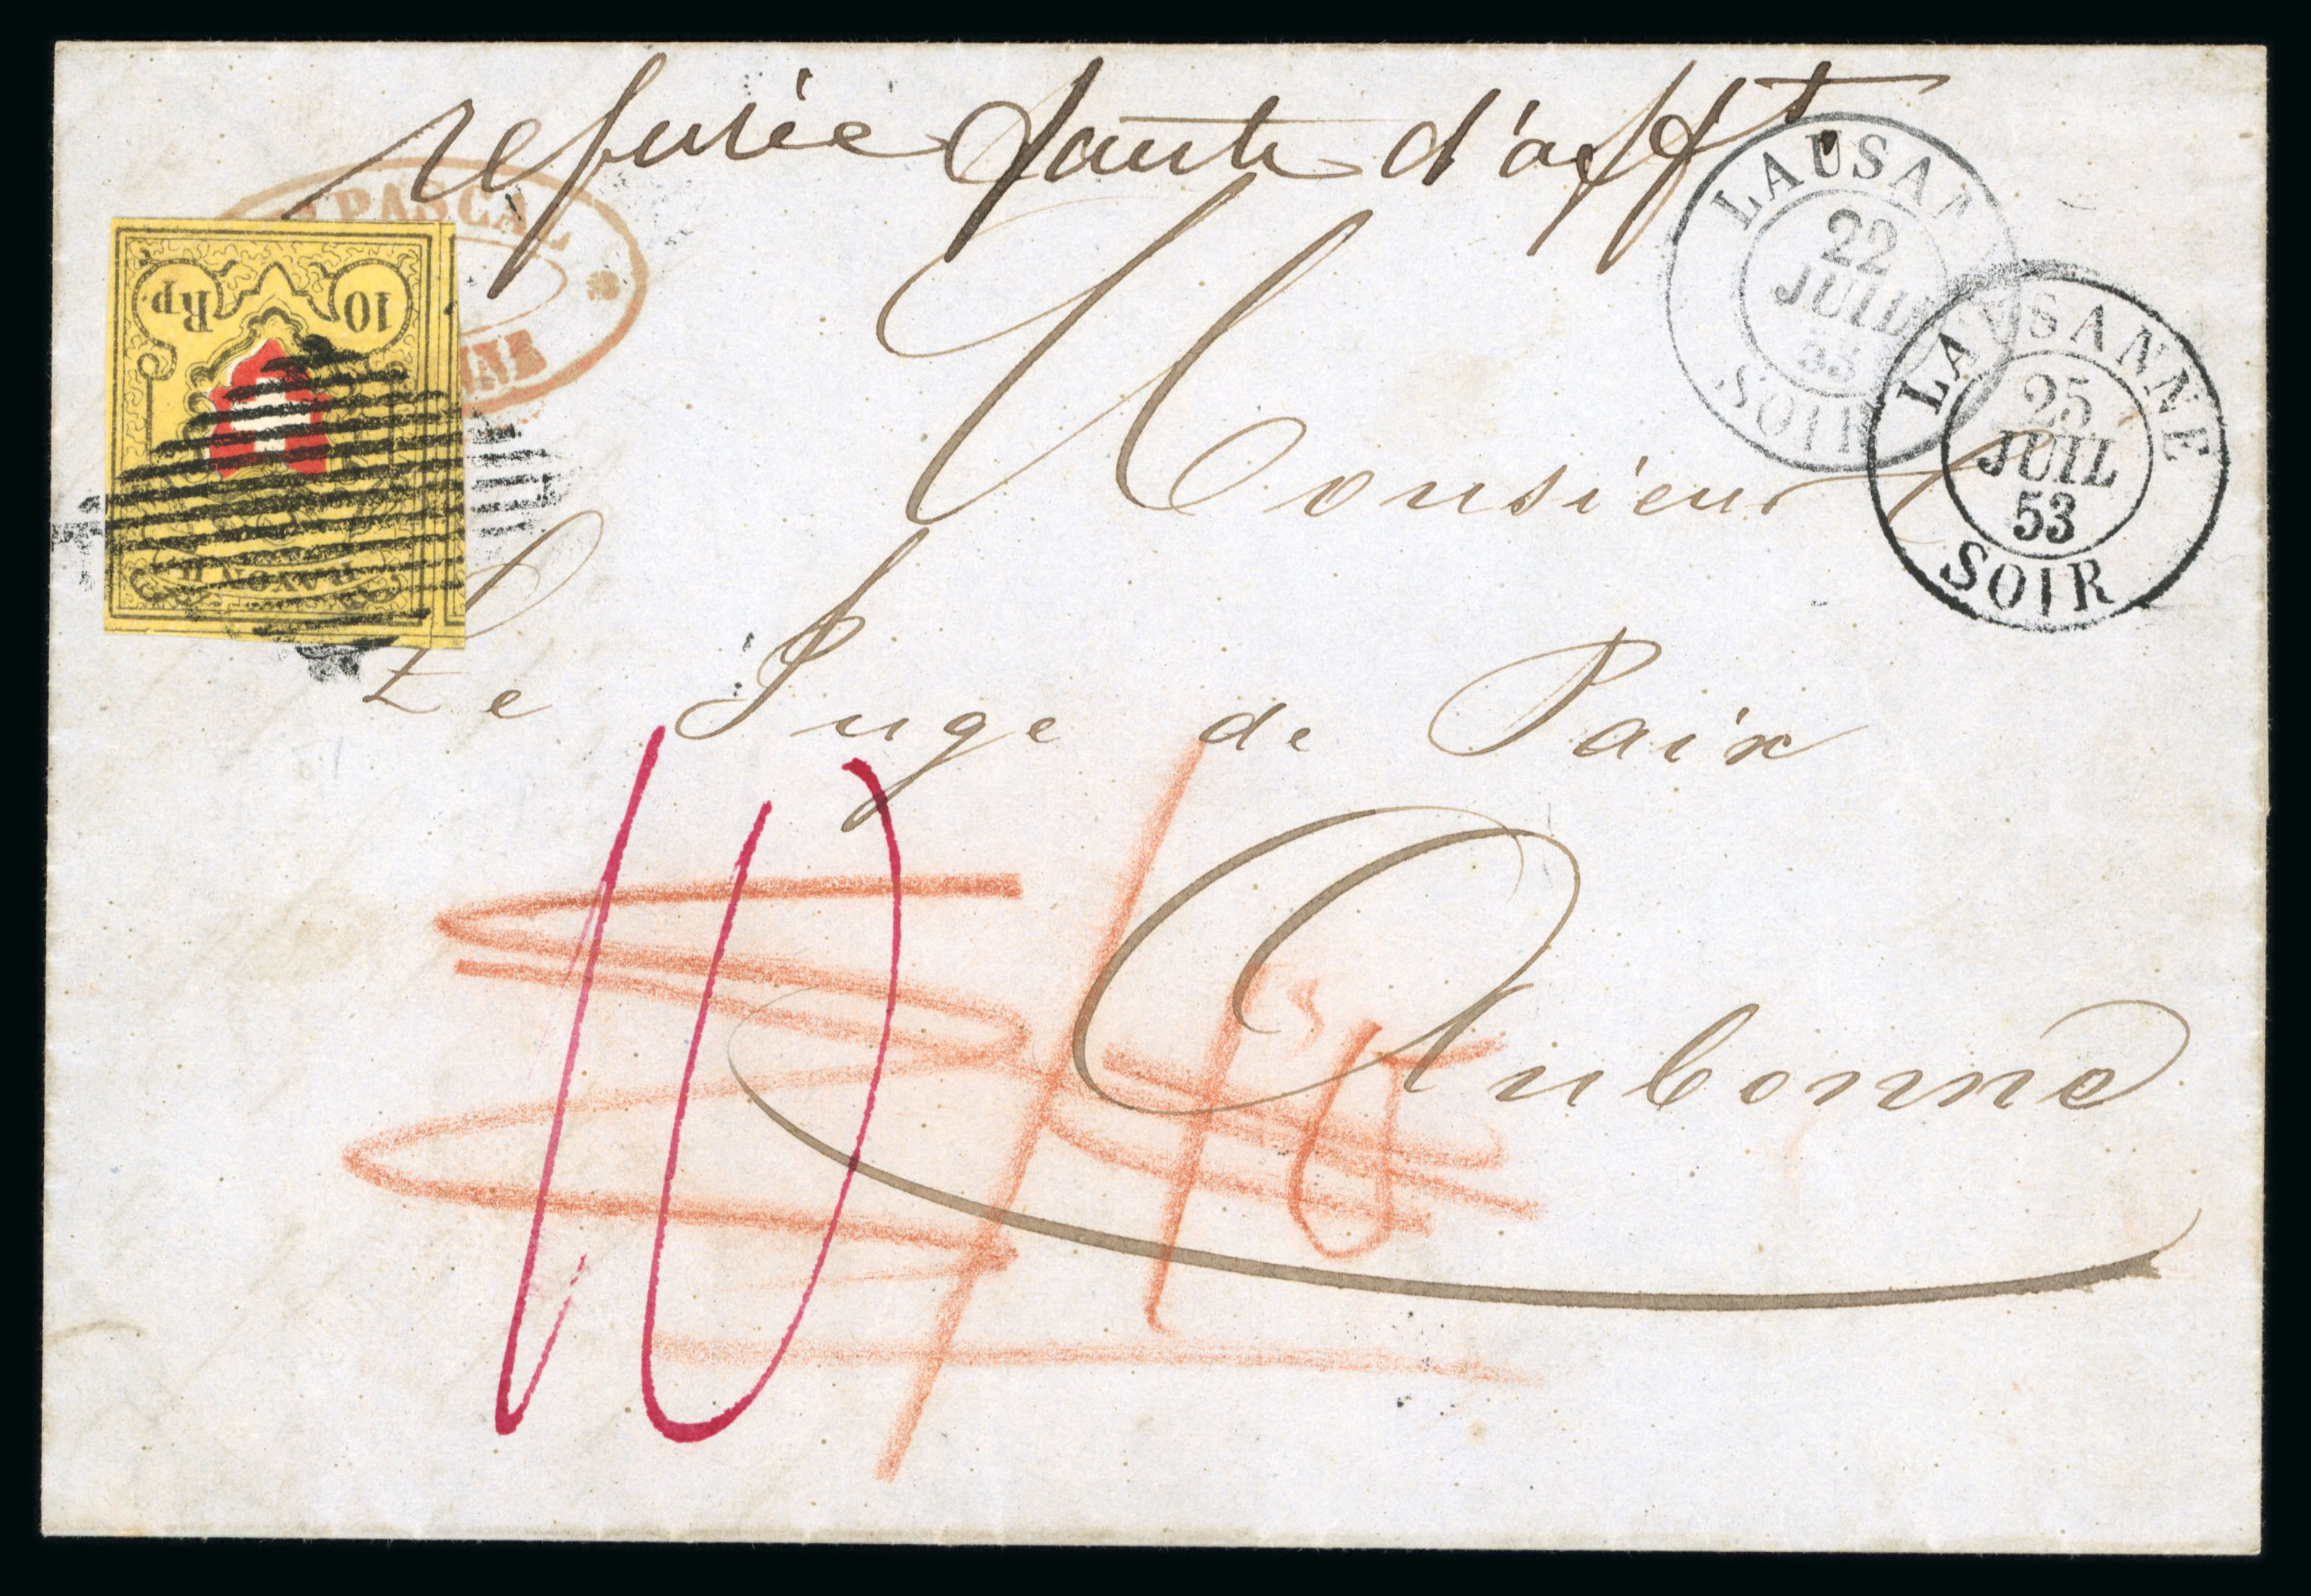 refusée faute d'afft.
PASCAL
10 Rp.
RAYON II
LAUSANNE
22
JUIL
53
SOIR
LAUSANNE
25
JUIL
53
SOIR
Monsieur
Le Juge de Paix
Aubonne
10
10